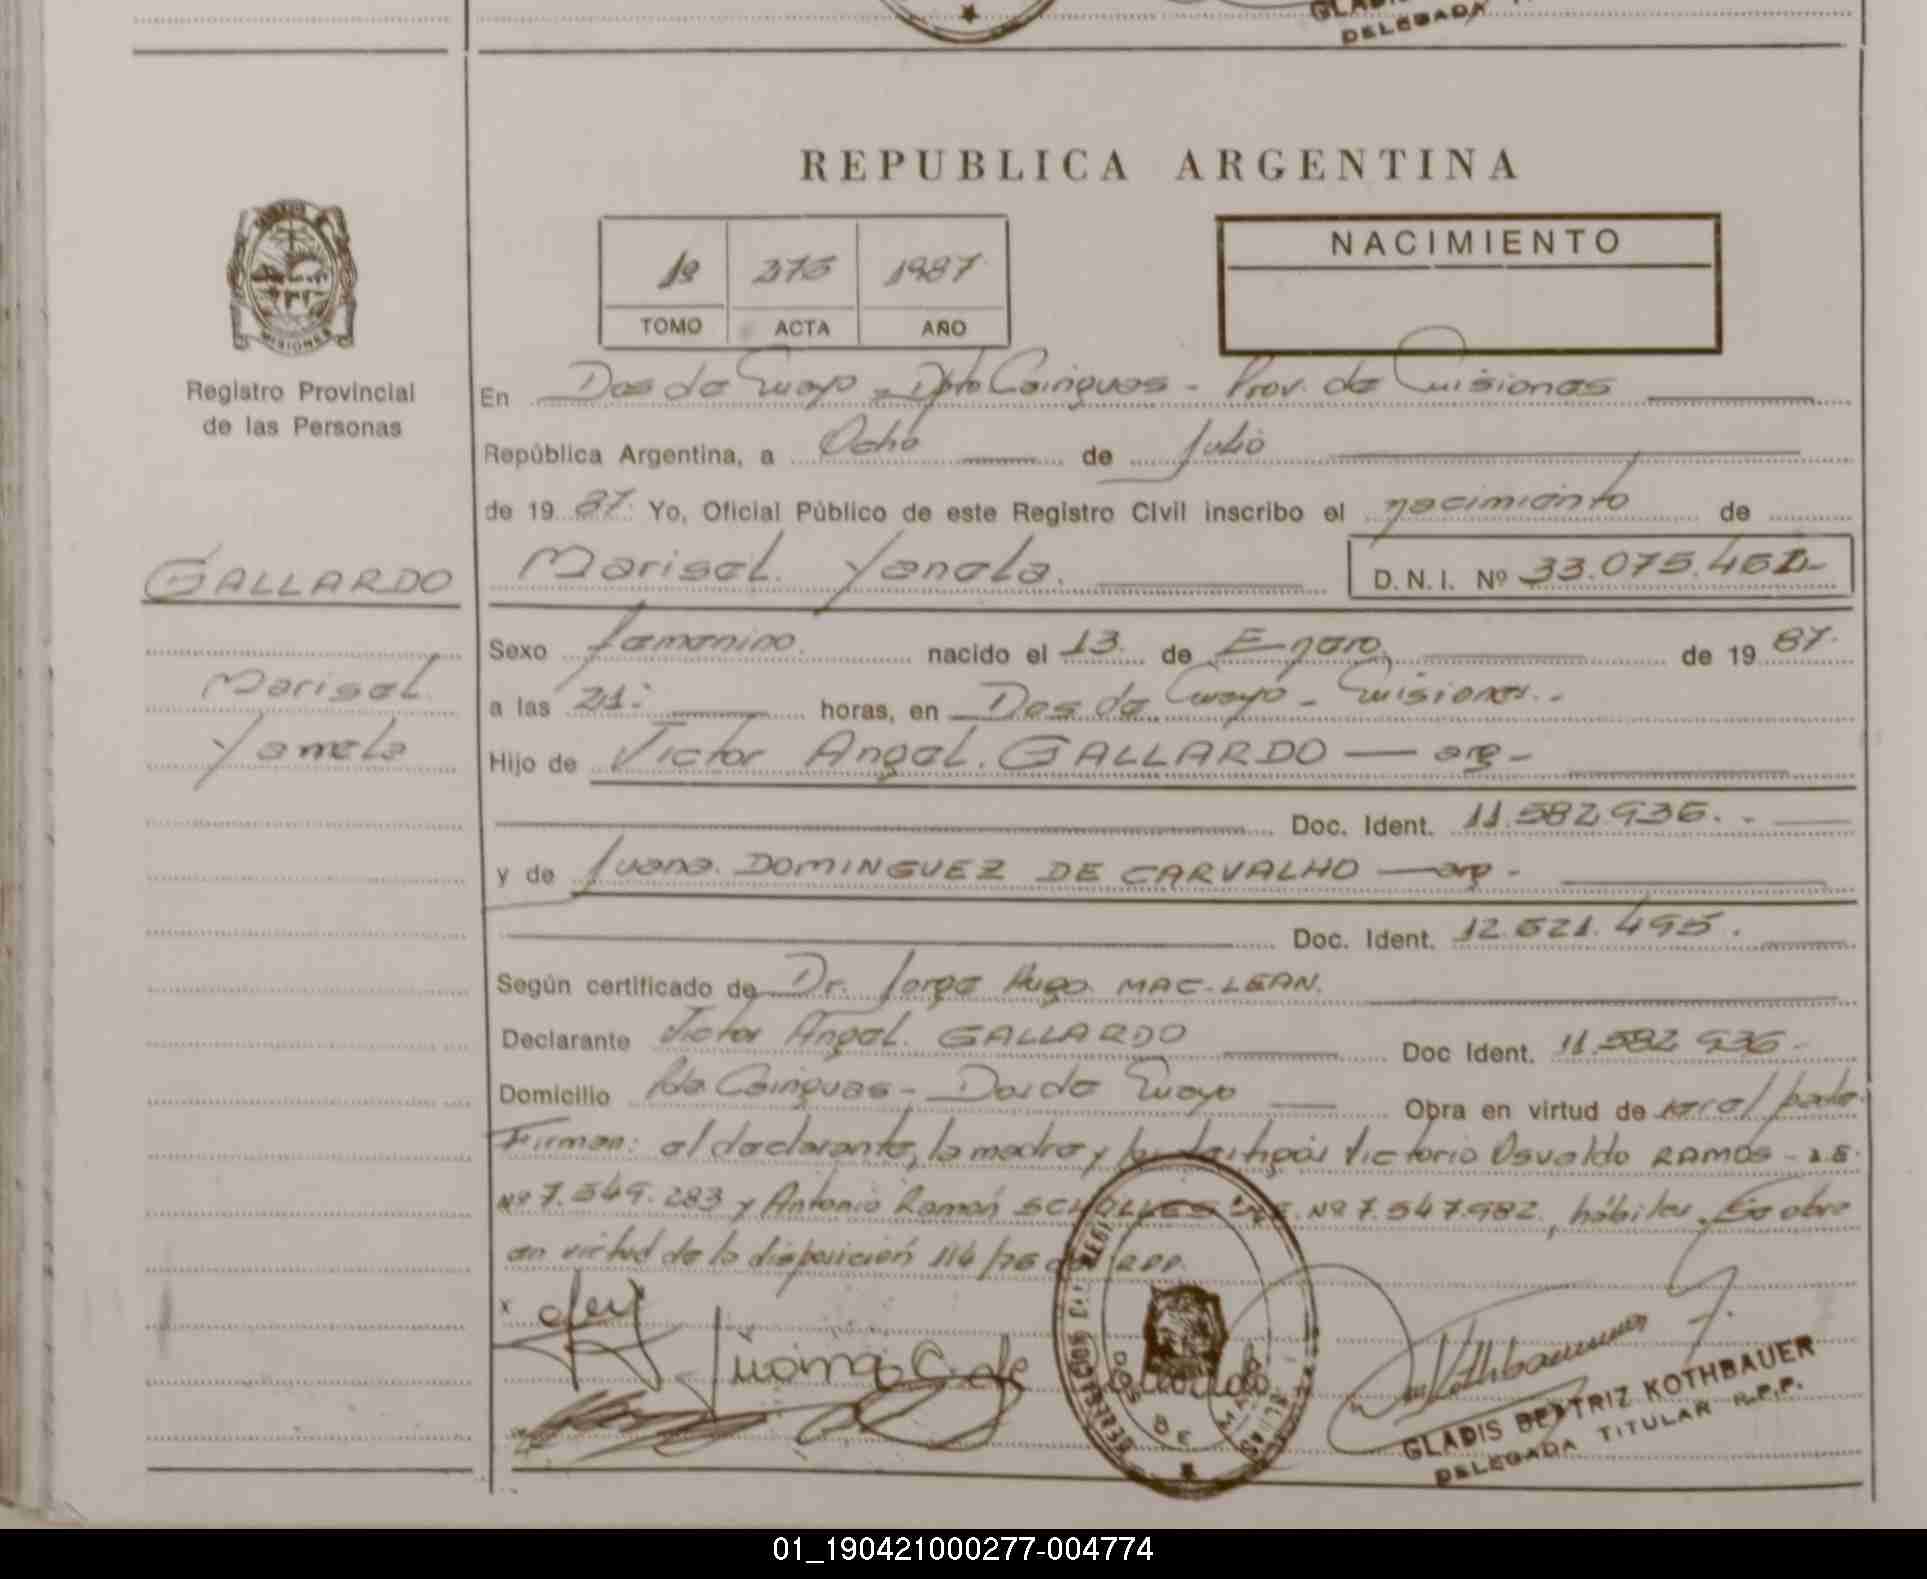 GLADIS
DELEGADA
REPUBLICA ARGENTINA
1º 375 1987
TOMO ACTA AÑO
NACIMIENTO
MISIONES
Registro Provincial
de las Personas
En Dos de Mayo - Dpto Cainguas - Prov. de Misiones
República Argentina, a Ocho de Julio
de 19 87. Yo, Oficial Público de este Registro Civil inscribo el nacimiento de
GALLARDO
Marisel
Yanela
Marisel Yanela. D.N.I. Nº 33.075.461-
Sexo femenino. nacido el 13 de Enero de 19 87.
a las 21: horas, en Dos de Mayo - Misiones.-
Hijo de Victor Angel. GALLARDO — arg-
Doc. Ident. 11.582.936.-
y de Juana. DOMINGUEZ DE CARVALHO — arg-
Doc. Ident. 12.621.495.
Según certificado de Dr. Jorge Hugo MAC-LEAN.
Declarante Victor Angel. GALLARDO Doc Ident. 11.582 936-
Domicilio Pda Cainguas - Dos de Mayo Obra en virtud de ser el padre
Firman: el declarante, la madre y los testigos Victorio Osvaldo RAMOS -
Nº 7.549.283 y Antonio Ramón Nº 7.547.982, hábiles. Se obra
en virtud de la disposición 114/76 RPP.
x
Juana C. de Gallardo
DOS DE MAYO
Kothbauer
GLADIS BEATRIZ KOTHBAUER
DELEGADA TITULAR R.P.P.
01_190421000277-004774